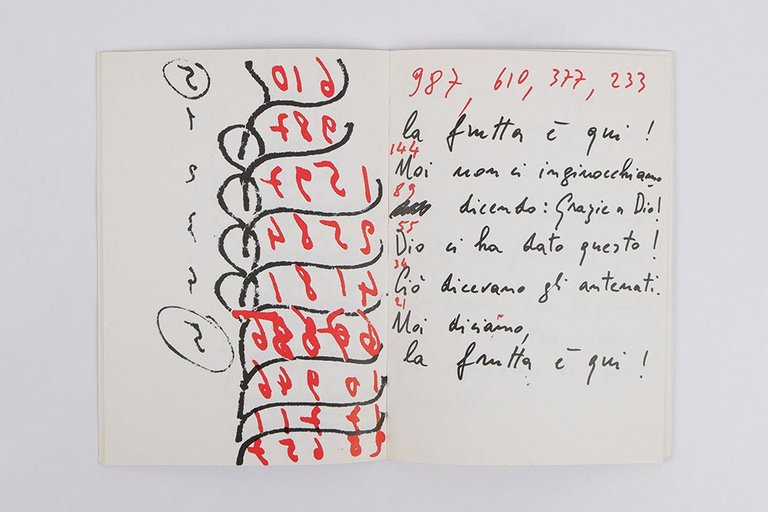 610
987
1597
2584
4181
10946
17711
28657
987, 610, 377, 233
la frutta è qui !
144
Noi non ci inginocchiamo
89
dicendo: Grazie a Dio!
55
Dio ci ha dato questo !
34
Ciò dicevano gli antenati.
21
Noi diciamo,
la frutta è qui !